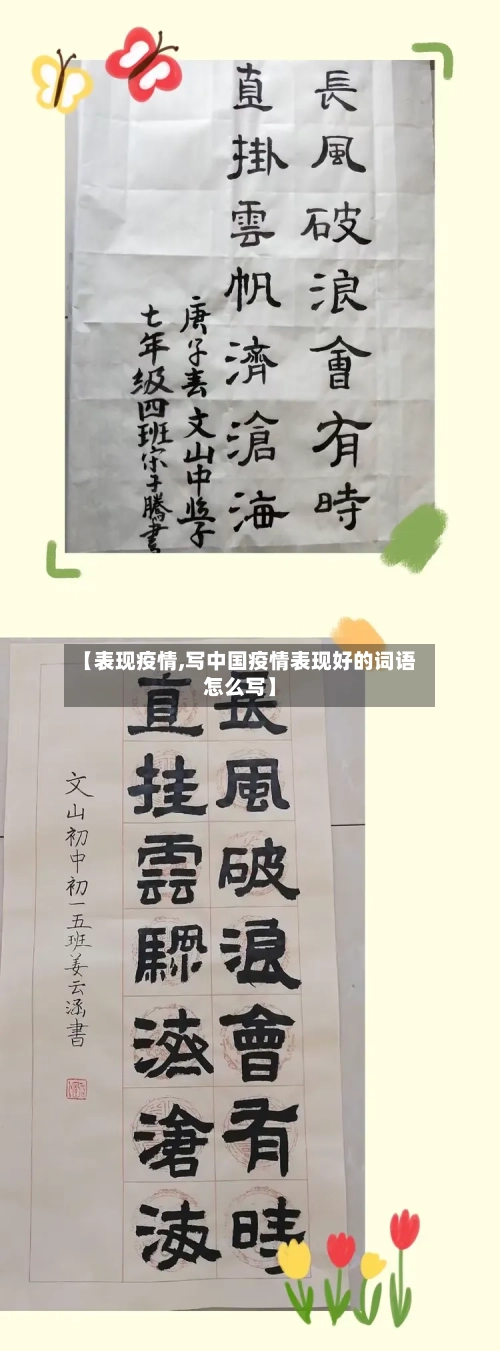 長風破浪會有時
直掛雲帆濟滄海
庚子春文山中學
七年级四班宋子騰書
【表现疫情,写中国疫情表现好的词语
怎么写】
長風破浪會有時
直挂雲颿濟滄海
文山初中初一五班姜云涵書